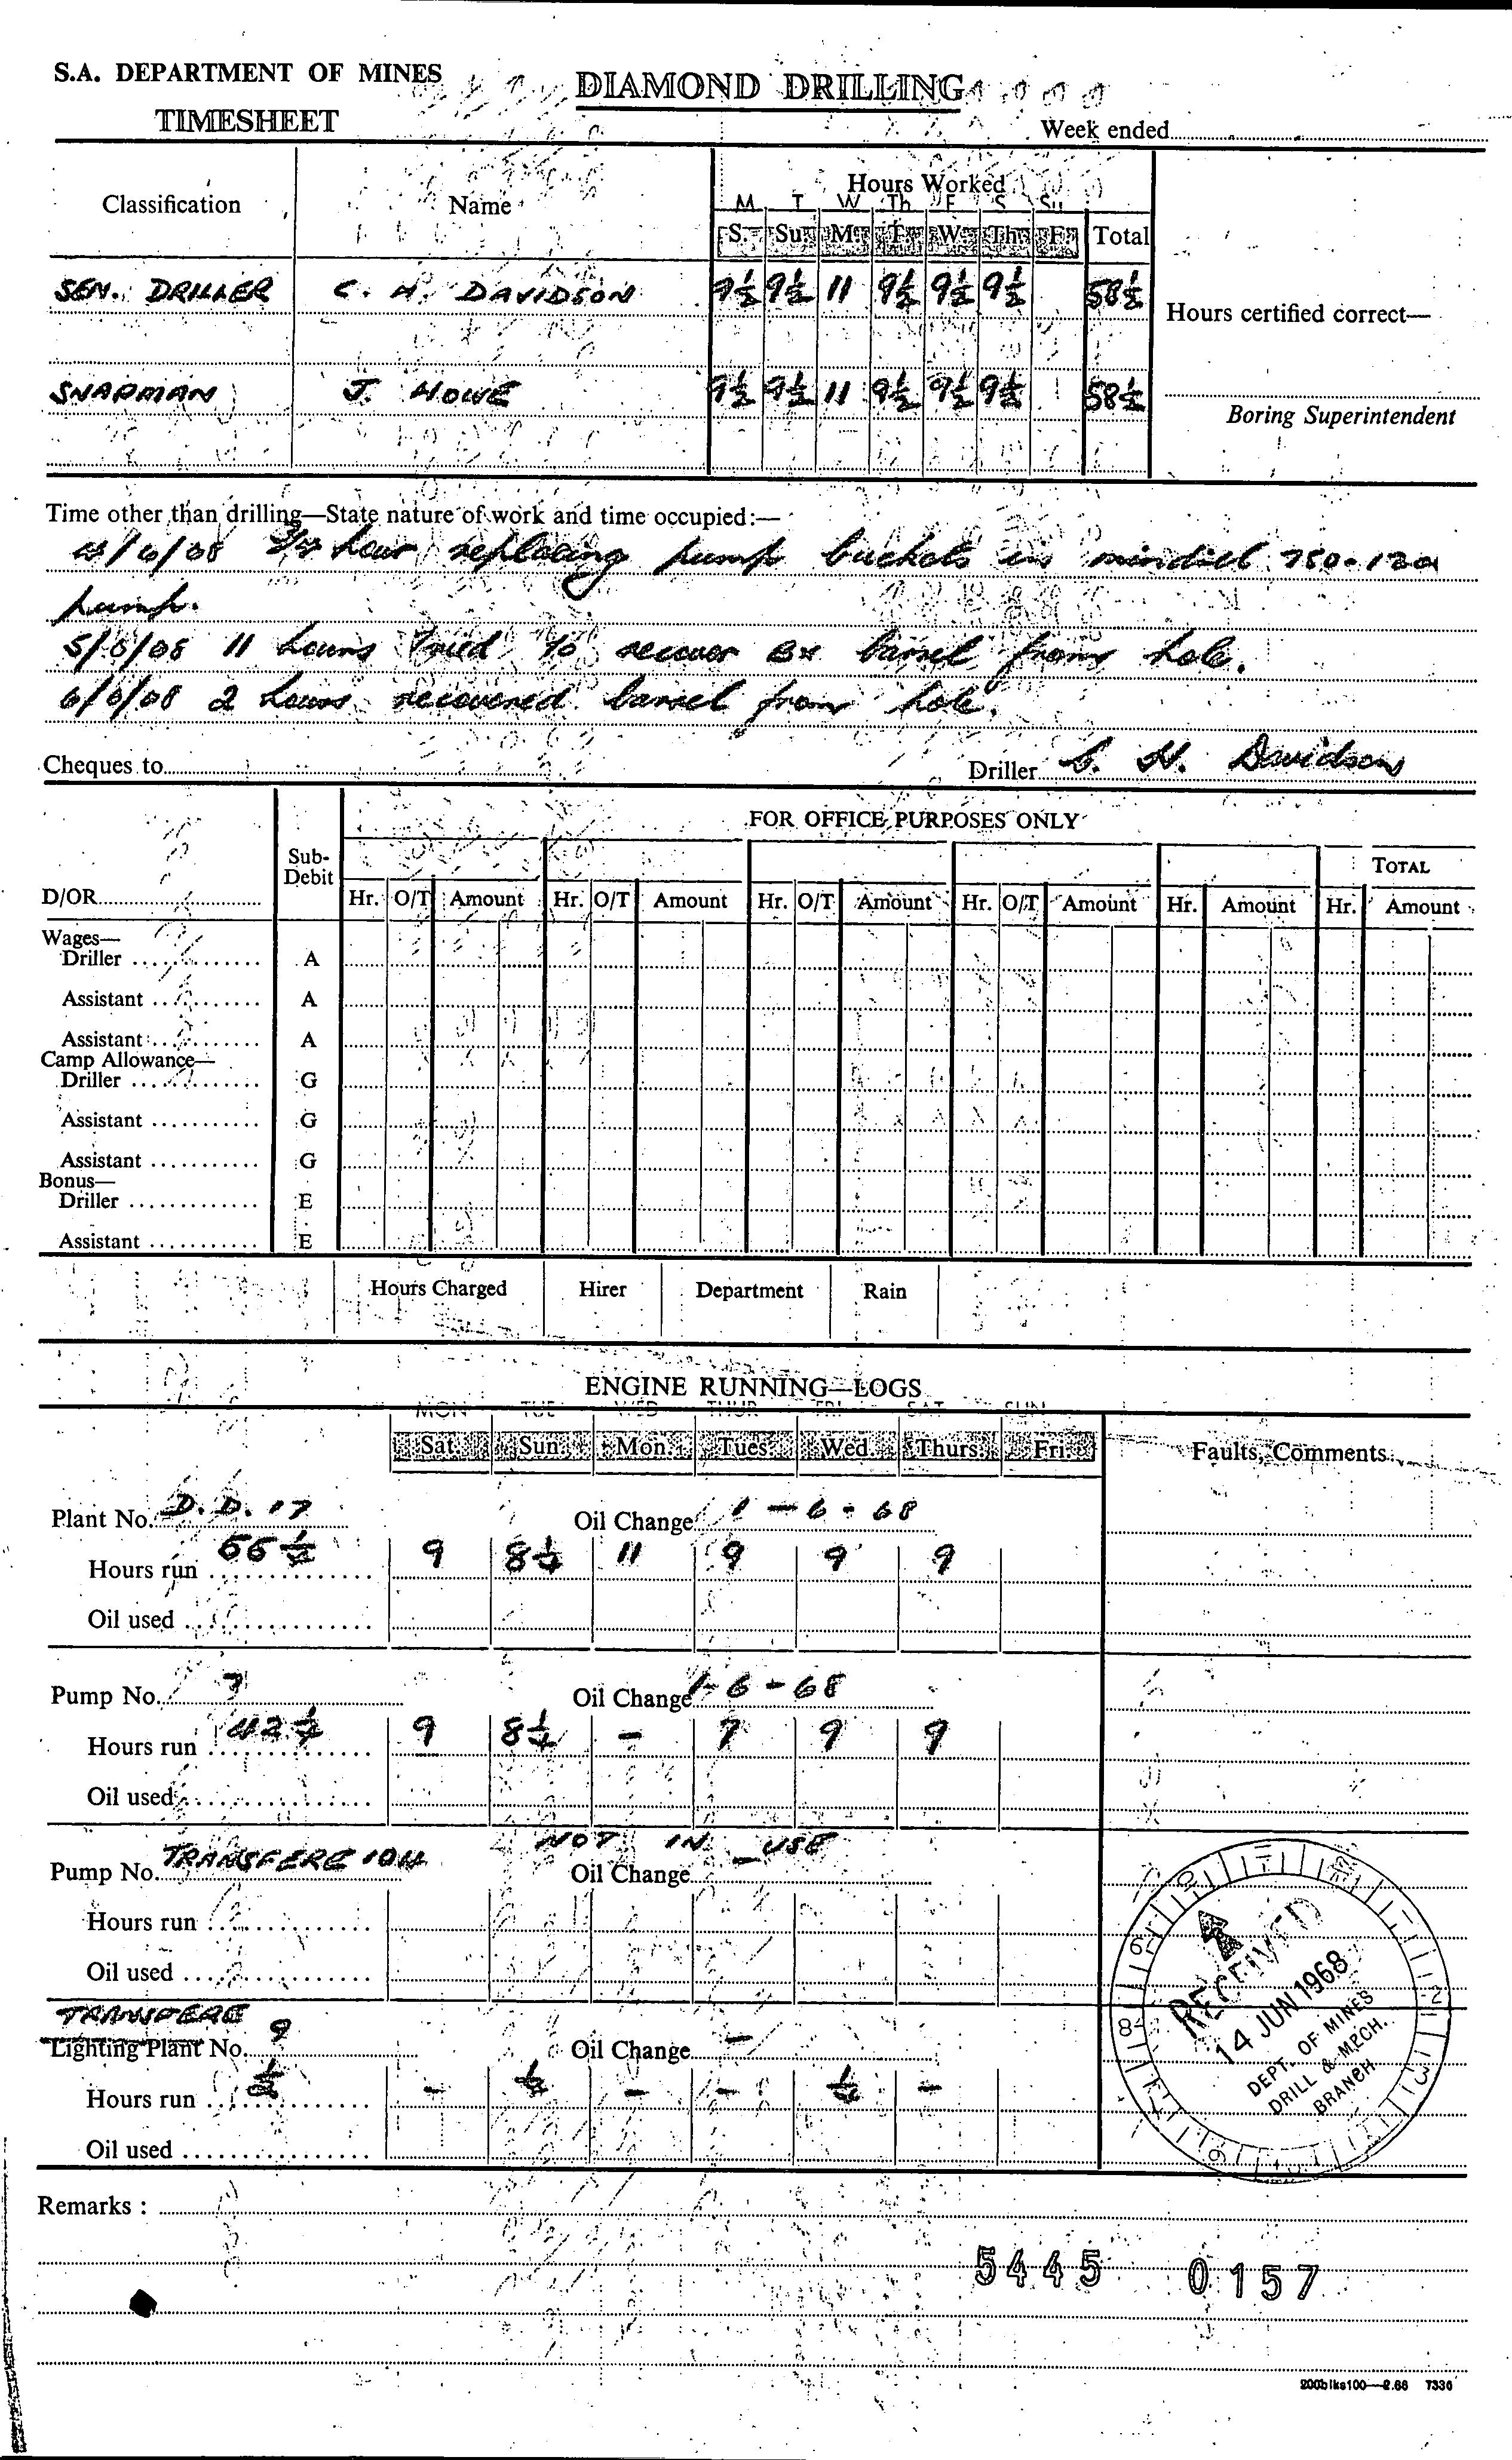 S.A. DEPARTMENT OF MINES
DIAMOND DRILLING
TIMESHEET
Week ended
Classification Name Hours Worked
M T W Th F S Su
S. Su M T W Th F Total
SEN. DRILLER C. H. DAVIDSON 9½ 9½ 11 9½ 9½ 9½ 58½
Hours certified correct—
SNAPMAN J. HOWE 9½ 9½ 11 9½ 9½ 9½ 58½
Boring Superintendent
Time other than drilling—State nature of work and time occupied:—
4/6/68 hour replacing pump buckets in mindrill
pump.
5/6/68 11 hours tried to recover Bx barrel from hole.
6/6/68 2 hours recovered barrel from hole.
Cheques to Driller C. H. Davidson
FOR OFFICE PURPOSES ONLY
D/OR Sub-Debit TOTAL
Hr. O/T Amount Hr. O/T Amount Hr. O/T Amount Hr. O/T Amount Hr. Amount Hr. Amount
Wages—
Driller A
Assistant A
Assistant A
Camp Allowance—
Driller G
Assistant G
Assistant G
Bonus—
Driller E
Assistant E
Hours Charged Hirer Department Rain
ENGINE RUNNING—LOGS
MON TUE WED THUR FRI SAT SUN
Sat. Sun. Mon. Tues. Wed. Thurs. Fri. Faults, Comments
Plant No. D.D. 17 Oil Change 1-6-68
Hours run 9 8¼ 11 9 9 9
Oil used
Pump No. 7 Oil Change 1-6-68
Hours run 42¼ 9 8¼ - 7 9 9
Oil used
Pump No. TRANSFERE 104 Oil Change NOT IN USE
Hours run
Oil used
TRANSFERE
Lighting Plant No. 9 Oil Change -
Hours run - - - -
Oil used
RECEIVED
14 JUN 1968
DEPT. OF MINES
DRILL & MECH.
BRANCH
Remarks :
5445 0157
200blks100—2.66 7336